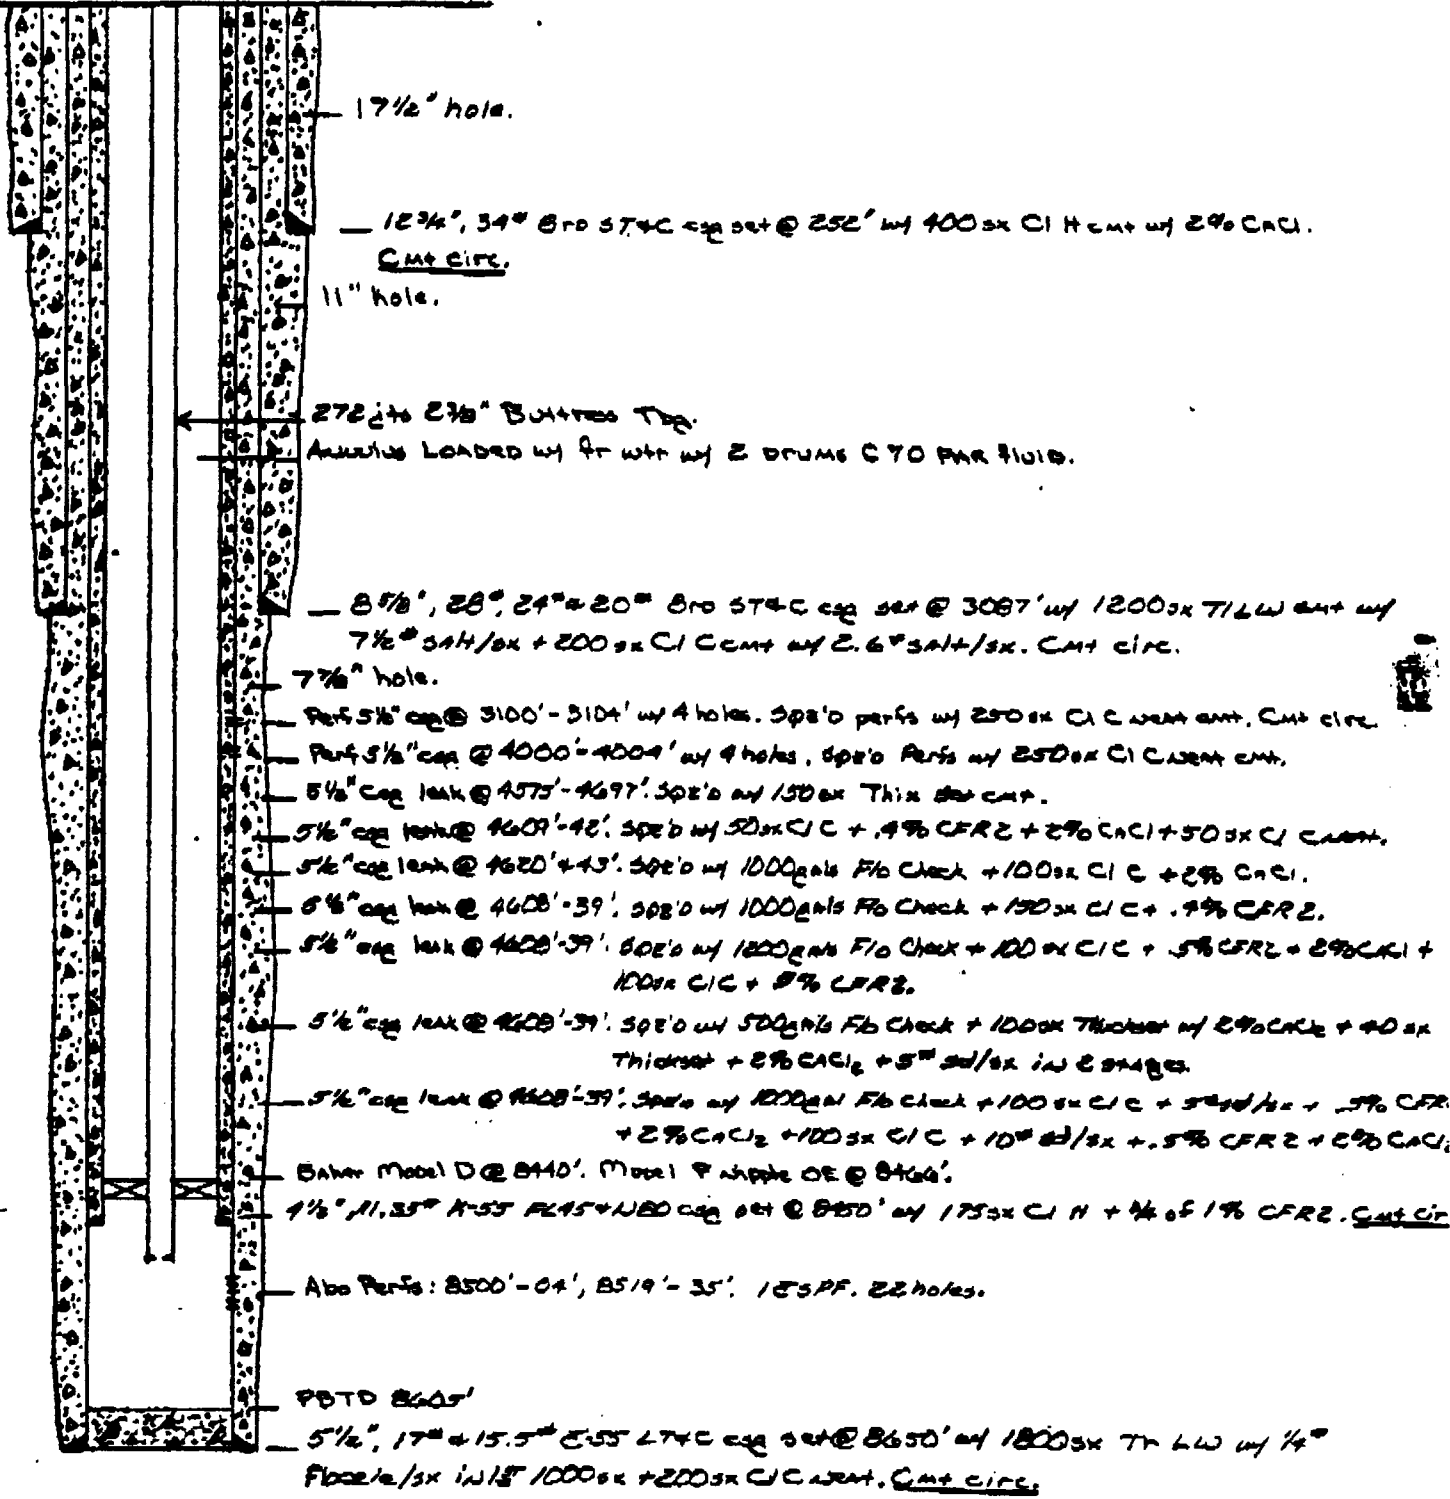 17½" hole.
12¾", 34# 8rd ST&C csg set @ 252' w/ 400 sx Cl H cmt w/ 2% CaCl.
Cmt circ.
11" hole.
272 jts 2⅜" Buttress Tbg.
Annulus LOADED w/ fr wtr w/ 2 DRUMS C 70 PKR FLUID.
8⅝", 28#, 24# & 20# 8rd ST&C csg set @ 3087' w/ 1200 sx TLLW cmt w/
7½# SAlt/sx + 200 sx Cl C cmt w/ 2.6# SAlt/sx. Cmt circ.
7⅞" hole.
Perf 5½" csg @ 3100'-3104' w/ 4 holes. Sqz'd perfs w/ 250 sx Cl C neat cmt. Cmt circ.
Perf 5½" csg @ 4000'-4004' w/ 4 holes, Sqz'd Perfs w/ 250 sx Cl C neat cmt.
5½" csg leak @ 4575'-4697'. Sqz'd w/ 150 sx Thix set cmt.
5½" csg leak @ 4609'-42'. Sqz'd w/ 50 sx Cl C + .4% CFR2 + 2% CaCl + 50 sx Cl C neat.
5½" csg leak @ 4620' & 43'. Sqz'd w/ 1000 gals Flo Check + 100 sx Cl C + 2% CaCl.
5½" csg leak @ 4608'-39'. Sqz'd w/ 1000 gals Flo Check + 150 sx Cl C + .4% CFR2.
5½" csg leak @ 4608'-39'. Sqz'd w/ 1200 gals Flo Check + 100 sx Cl C + .5% CFR2 + 2% CaCl +
100 sx Cl C + % CFR2.
5½" csg leak @ 4608'-39'. Sqz'd w/ 500 gals Flo Check + 100 sx Thickset w/ 2% CaCl₂ + 40 sx
Thickset + 2% CACl₂ + 5# sd/sx in 2 stages.
5½" csg leak @ 4608'-39'. Sqz'd w/ 1000 gal Flo Check + 100 sx Cl C + 5# sd/sx + .5% CFR
+ 2% CaCl₂ + 100 sx Cl C + 10# sd/sx + .5% CFR2 + 2% CACl₂
Baker Model D @ 8440'. Model F nipple OE @ 8466'.
4½", 11.35# K-55 FL45 & N80 csg set @ 8450' w/ 175 sx Cl H + ¾ of 1% CFR2. Cmt cir
Abo Perfs: 8500'-04', 8519'-35'. 1 JSPF. 22 holes.
PBTD 8605'
5½", 17# & 15.5# LT&C csg set @ 8650' w/ 1800 sx Tr LW w/ ¼#
Flocele/sx in 1st 1000 sx + 200 sx Cl C neat. Cmt circ.